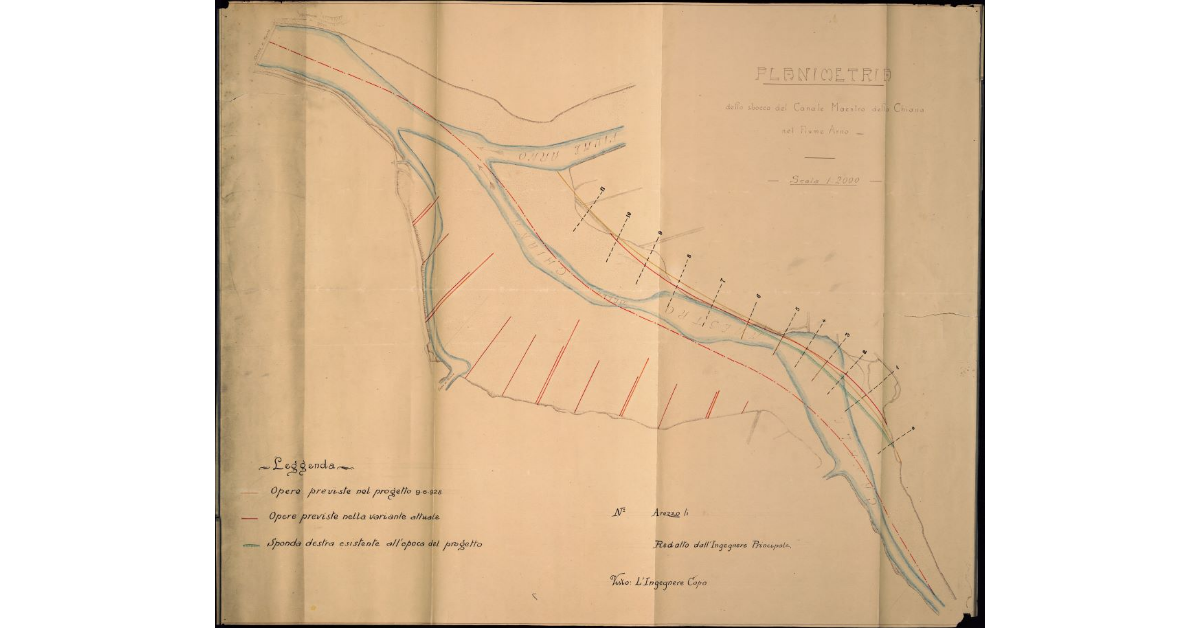 PLANIMETRIA
dello sbocco del Canale Maestro della Chiana
nel Fiume Arno
Scala 1:2000
FIUME ARNO
11
10
9
8
7
6
5
4
3
2
1
Leggenda
Opere previste nel progetto 9-6-928
Opere previste nella variante attuale
Sponda destra esistente all'epoca del progetto
N° Arezzo li
Redatto dall'Ingegnere Principale
Visto: L'Ingegnere Capo